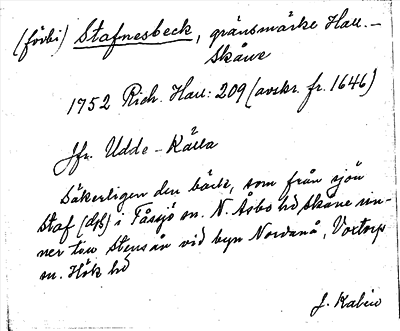 (förbi) Stafnesbeck, gränsmärke Hall.-
Skåne
1752 Rich. Hall: 209 (avskr. fr. 1646)
Jfr. Udde-Källa
Säkerligen den bäck, som från sjön
Staf (dsk) i Fåsjö sn. N. Åsbo hd Skåne rin-
ner t Stensån vid byn Nordanå, Voxtorp
sn. Hök hd
J. Kalén